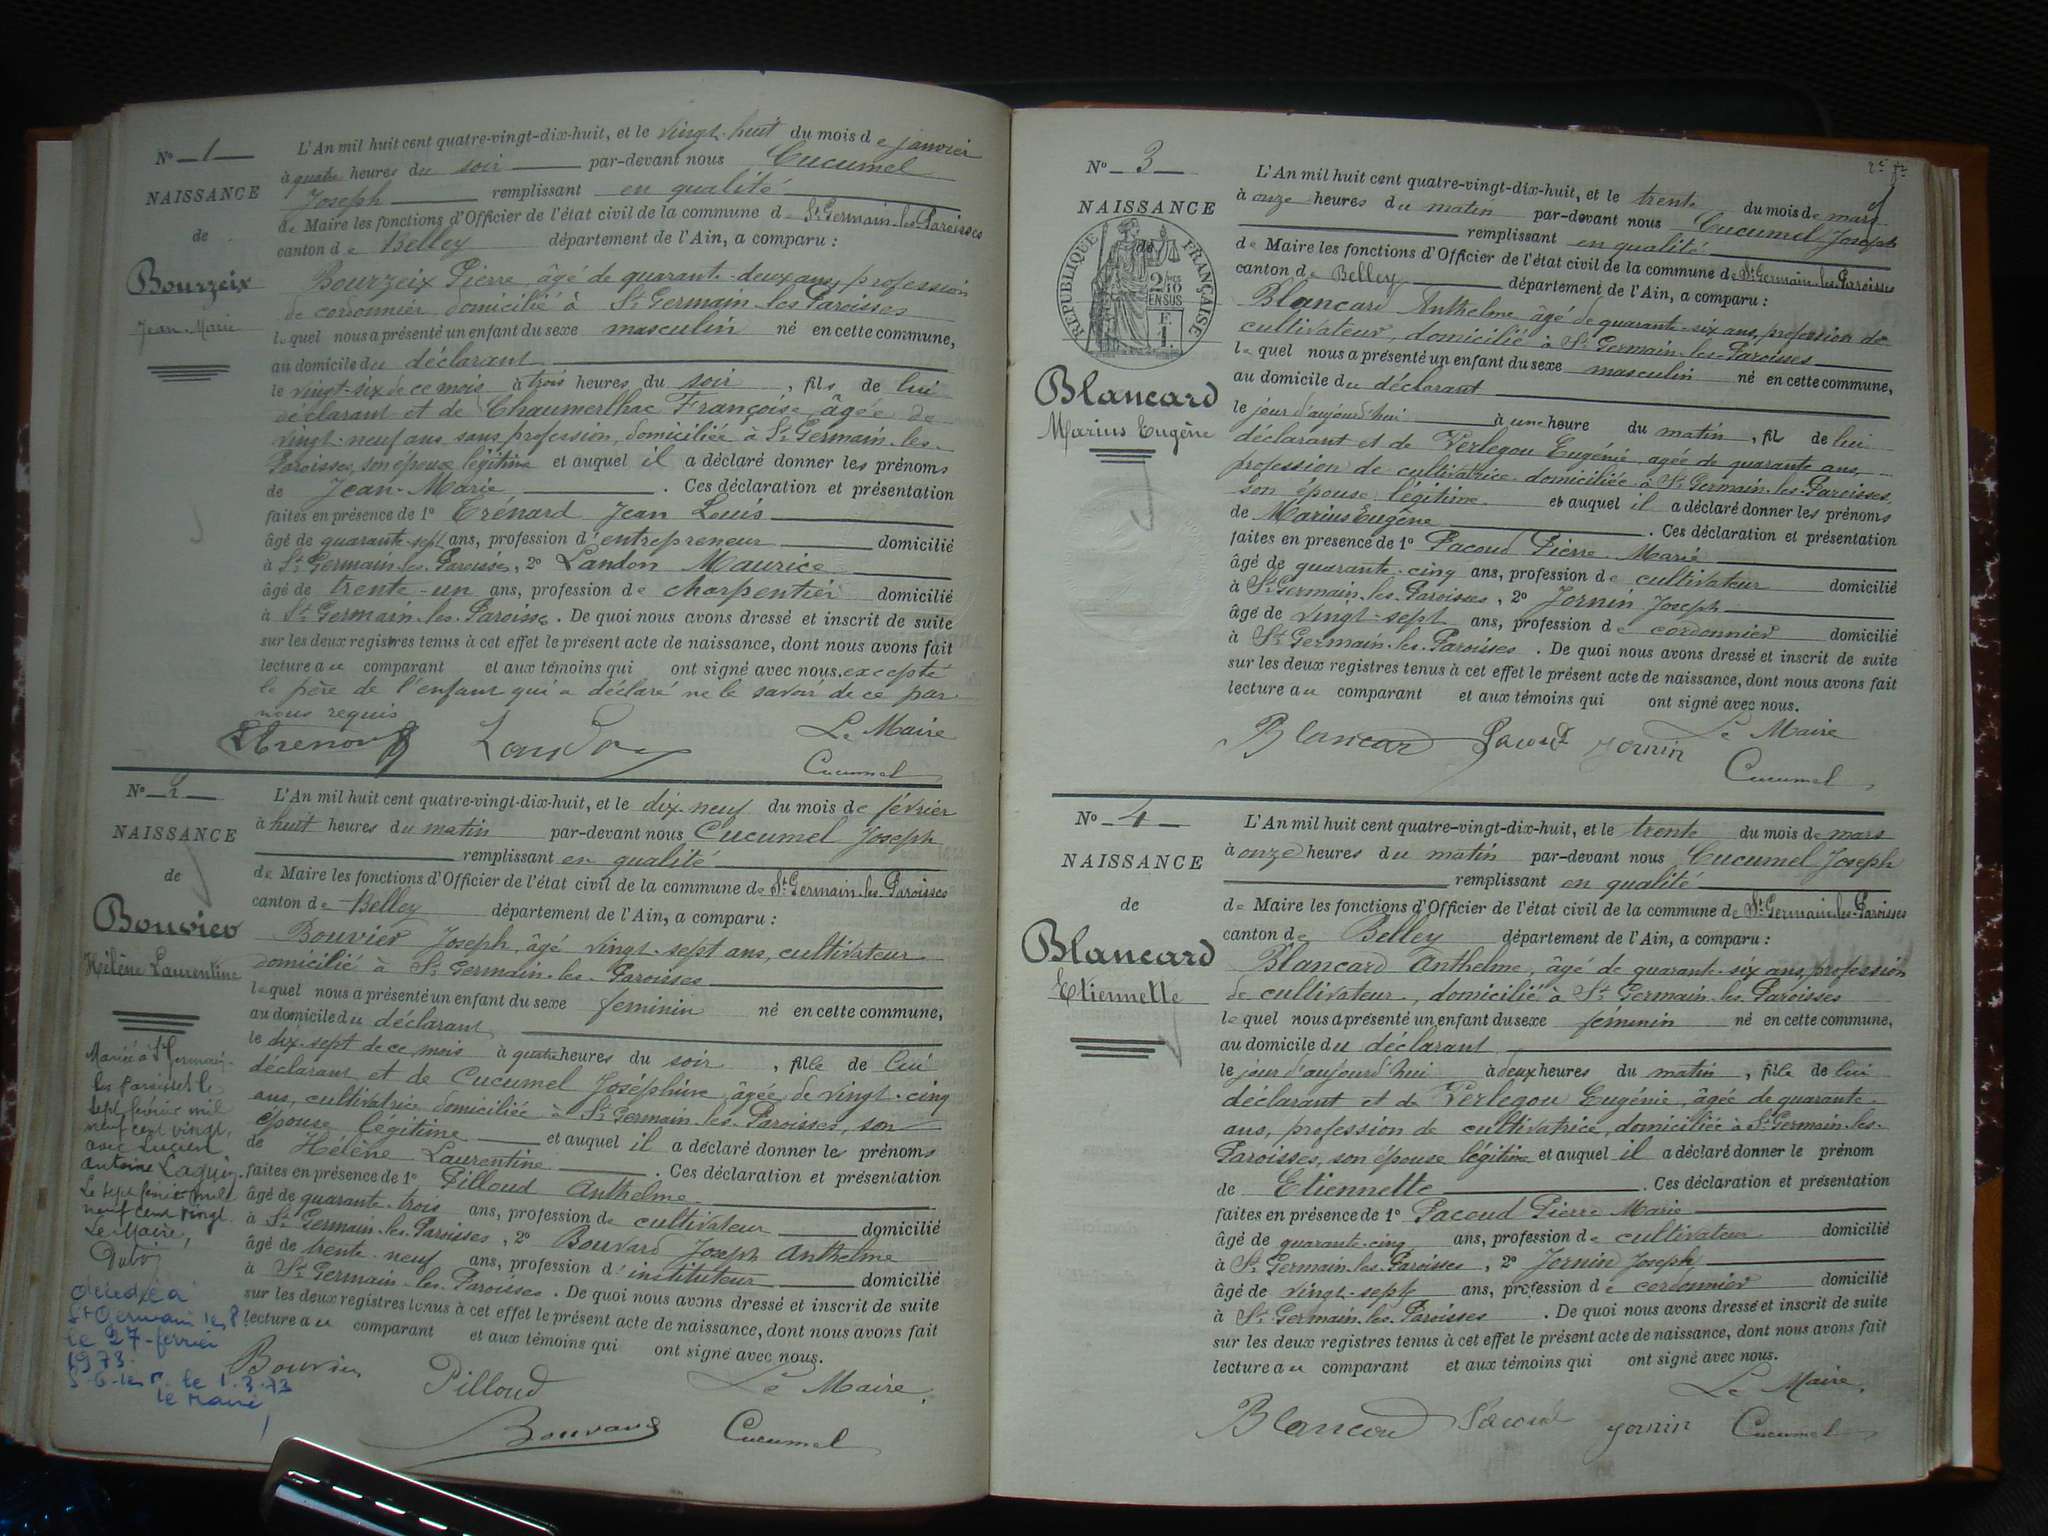 N° 1
NAISSANCE
de
Bourzeix
Jean-Marie
L'An mil huit cent quatre-vingt-dix-huit, et le vingt-huit du mois de janvier
à quatre heures du soir par-devant nous Cucumel
Joseph remplissant en qualité
de Maire les fonctions d'Officier de l'état civil de la commune de St Germain-les-Paroisses
canton de Belley département de l'Ain, a comparu :
Bourzeix Pierre, âgé de quarante-deux ans, profession
de cordonnier domicilié à St Germain-les-Paroisses
lequel nous a présenté un enfant du sexe masculin né en cette commune,
au domicile du déclarant
le vingt-six de ce mois à trois heures du soir, fils de lui
déclarant et de Chaumerlhac Françoise, âgée de
vingt-neuf ans sans profession, domiciliée à St Germain-les-
Paroisses, son épouse légitime et auquel il a déclaré donner les prénoms
de Jean-Marie. Ces déclaration et présentation
faites en présence de 1° Trénard Jean Louis
âgé de quarante-sept ans, profession d'entrepreneur domicilié
à St Germain-les-Paroisses, 2° Landon Maurice
âgé de trente-un ans, profession de charpentier domicilié
à St Germain-les-Paroisse. De quoi nous avons dressé et inscrit de suite
sur les deux registres tenus à cet effet le présent acte de naissance, dont nous avons fait
lecture au comparant et aux témoins qui ont signé avec nous, excepté
le père de l'enfant qui a déclaré ne le savoir de ce par
nous requis
Landon Le Maire
Cucumel
N° 2
NAISSANCE
de
Bouvier
Hélène Laurentine
Mariée à St Germain-
les paroisses le
sept février mil
neuf cent vingt,
avec Lucien
Antoine Laguin.
Le sept février mil
neuf cent vingt.
Le Maire,
décédée à
St Germain les P.
le 27 février
1973.
le 1.3.73
le Maire
L'An mil huit cent quatre-vingt-dix-huit, et le dix-neuf du mois de février
à huit heures du matin par-devant nous Cucumel Joseph
remplissant en qualité
de Maire les fonctions d'Officier de l'état civil de la commune de St Germain-les-Paroisses
canton de Belley département de l'Ain, a comparu :
Bouvier Joseph, âgé vingt-sept ans, cultivateur
domicilié à St Germain-les-Paroisses
lequel nous a présenté un enfant du sexe feminin né en cette commune,
au domicile du déclarant
le dix-sept de ce mois à quatre heures du soir, fille de lui
déclarant et de Cucumel Joséphine, âgée de vingt-cinq
ans, cultivatrice domiciliée à St Germain-les-Paroisses, son
épouse légitime et auquel il a déclaré donner les prénoms
de Hélène Laurentine. Ces déclaration et présentation
faites en présence de 1° Pilloud Anthelme
âgé de quarante-trois ans, profession de cultivateur domicilié
à St Germain-les-Paroisses, 2° Bouvard Joseph Anthelme
âgé de trente-neuf ans, profession d'instituteur domicilié
à St Germain-les-Paroisses. De quoi nous avons dressé et inscrit de suite
sur les deux registres tenus à cet effet le présent acte de naissance, dont nous avons fait
lecture au comparant et aux témoins qui ont signé avec nous.
Bouvier Pilloud Le Maire,
Bouvard Cucumel
N° 3
NAISSANCE
de
RÉPUBLIQUE FRANÇAISE
Blancard
Marius Eugène
L'An mil huit cent quatre-vingt-dix-huit, et le trente du mois de mars
à onze heures du matin par-devant nous Cucumel Joseph
remplissant en qualité
de Maire les fonctions d'Officier de l'état civil de la commune de St Germain-les-Paroisses
canton de Belley département de l'Ain, a comparu :
Blancard Anthelme âgé de quarante-six ans, profession de
cultivateur, domicilié à St Germain-les-Paroisses
lequel nous a présenté un enfant du sexe masculin né en cette commune,
au domicile du déclarant
le jour d'aujourd'hui à une heure du matin, fil de lui
déclarant et de Perlegou Eugénie, agée de quarante ans,
profession de cultivatrice domiciliée à St Germain-les-Paroisses,
son épouse légitime et auquel il a déclaré donner les prénoms
de Marius Eugène. Ces déclaration et présentation
faites en présence de 1° Pacoud Pierre Marie
âgé de quarante-cinq ans, profession de cultivateur domicilié
à St Germain-les-Paroisses, 2° Jornin Joseph
âgé de vingt-sept ans, profession de cordonnier domicilié
à St Germain-les-Paroisses. De quoi nous avons dressé et inscrit de suite
sur les deux registres tenus à cet effet le présent acte de naissance, dont nous avons fait
lecture au comparant et aux témoins qui ont signé avec nous.
Blancard Pacoud Jornin Le Maire
Cucumel
N° 4
NAISSANCE
de
Blancard
Etiennette
L'An mil huit cent quatre-vingt-dix-huit, et le trente du mois de mars
à onze heures du matin par-devant nous Cucumel Joseph
remplissant en qualité
de Maire les fonctions d'Officier de l'état civil de la commune de St Germain-les-Paroisses
canton de Belley département de l'Ain, a comparu :
Blancard Anthelme, âgé de quarante-six ans, profession
de cultivateur, domicilié à St Germain-les-Paroisses
lequel nous a présenté un enfant du sexe féminin né en cette commune,
au domicile du déclarant
le jour d'aujourd'hui à deux heures du matin, fille de lui
déclarant et de Perlegou Eugénie, âgée de quarante
ans, profession de cultivatrice, domiciliée à St Germain-les-
Paroisses, son épouse légitime et auquel il a déclaré donner le prénom
de Etiennette. Ces déclaration et présentation
faites en présence de 1° Pacoud Pierre Marie
âgé de quarante-cinq ans, profession de cultivateur domicilié
à St Germain-les-Paroisses, 2° Jornin Joseph
âgé de vingt-sept ans, profession de cordonnier domicilié
à St Germain-les-Paroisses. De quoi nous avons dressé et inscrit de suite
sur les deux registres tenus à cet effet le présent acte de naissance, dont nous avons fait
lecture au comparant et aux témoins qui ont signé avec nous.
Le Maire,
Blancard Pacoud Jornin Cucumel